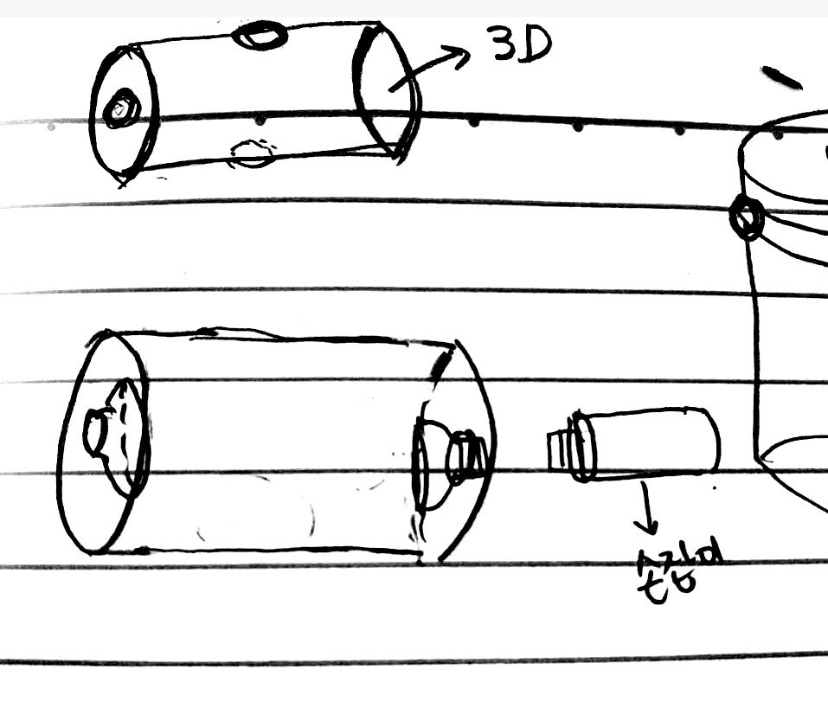 3D
손잡이